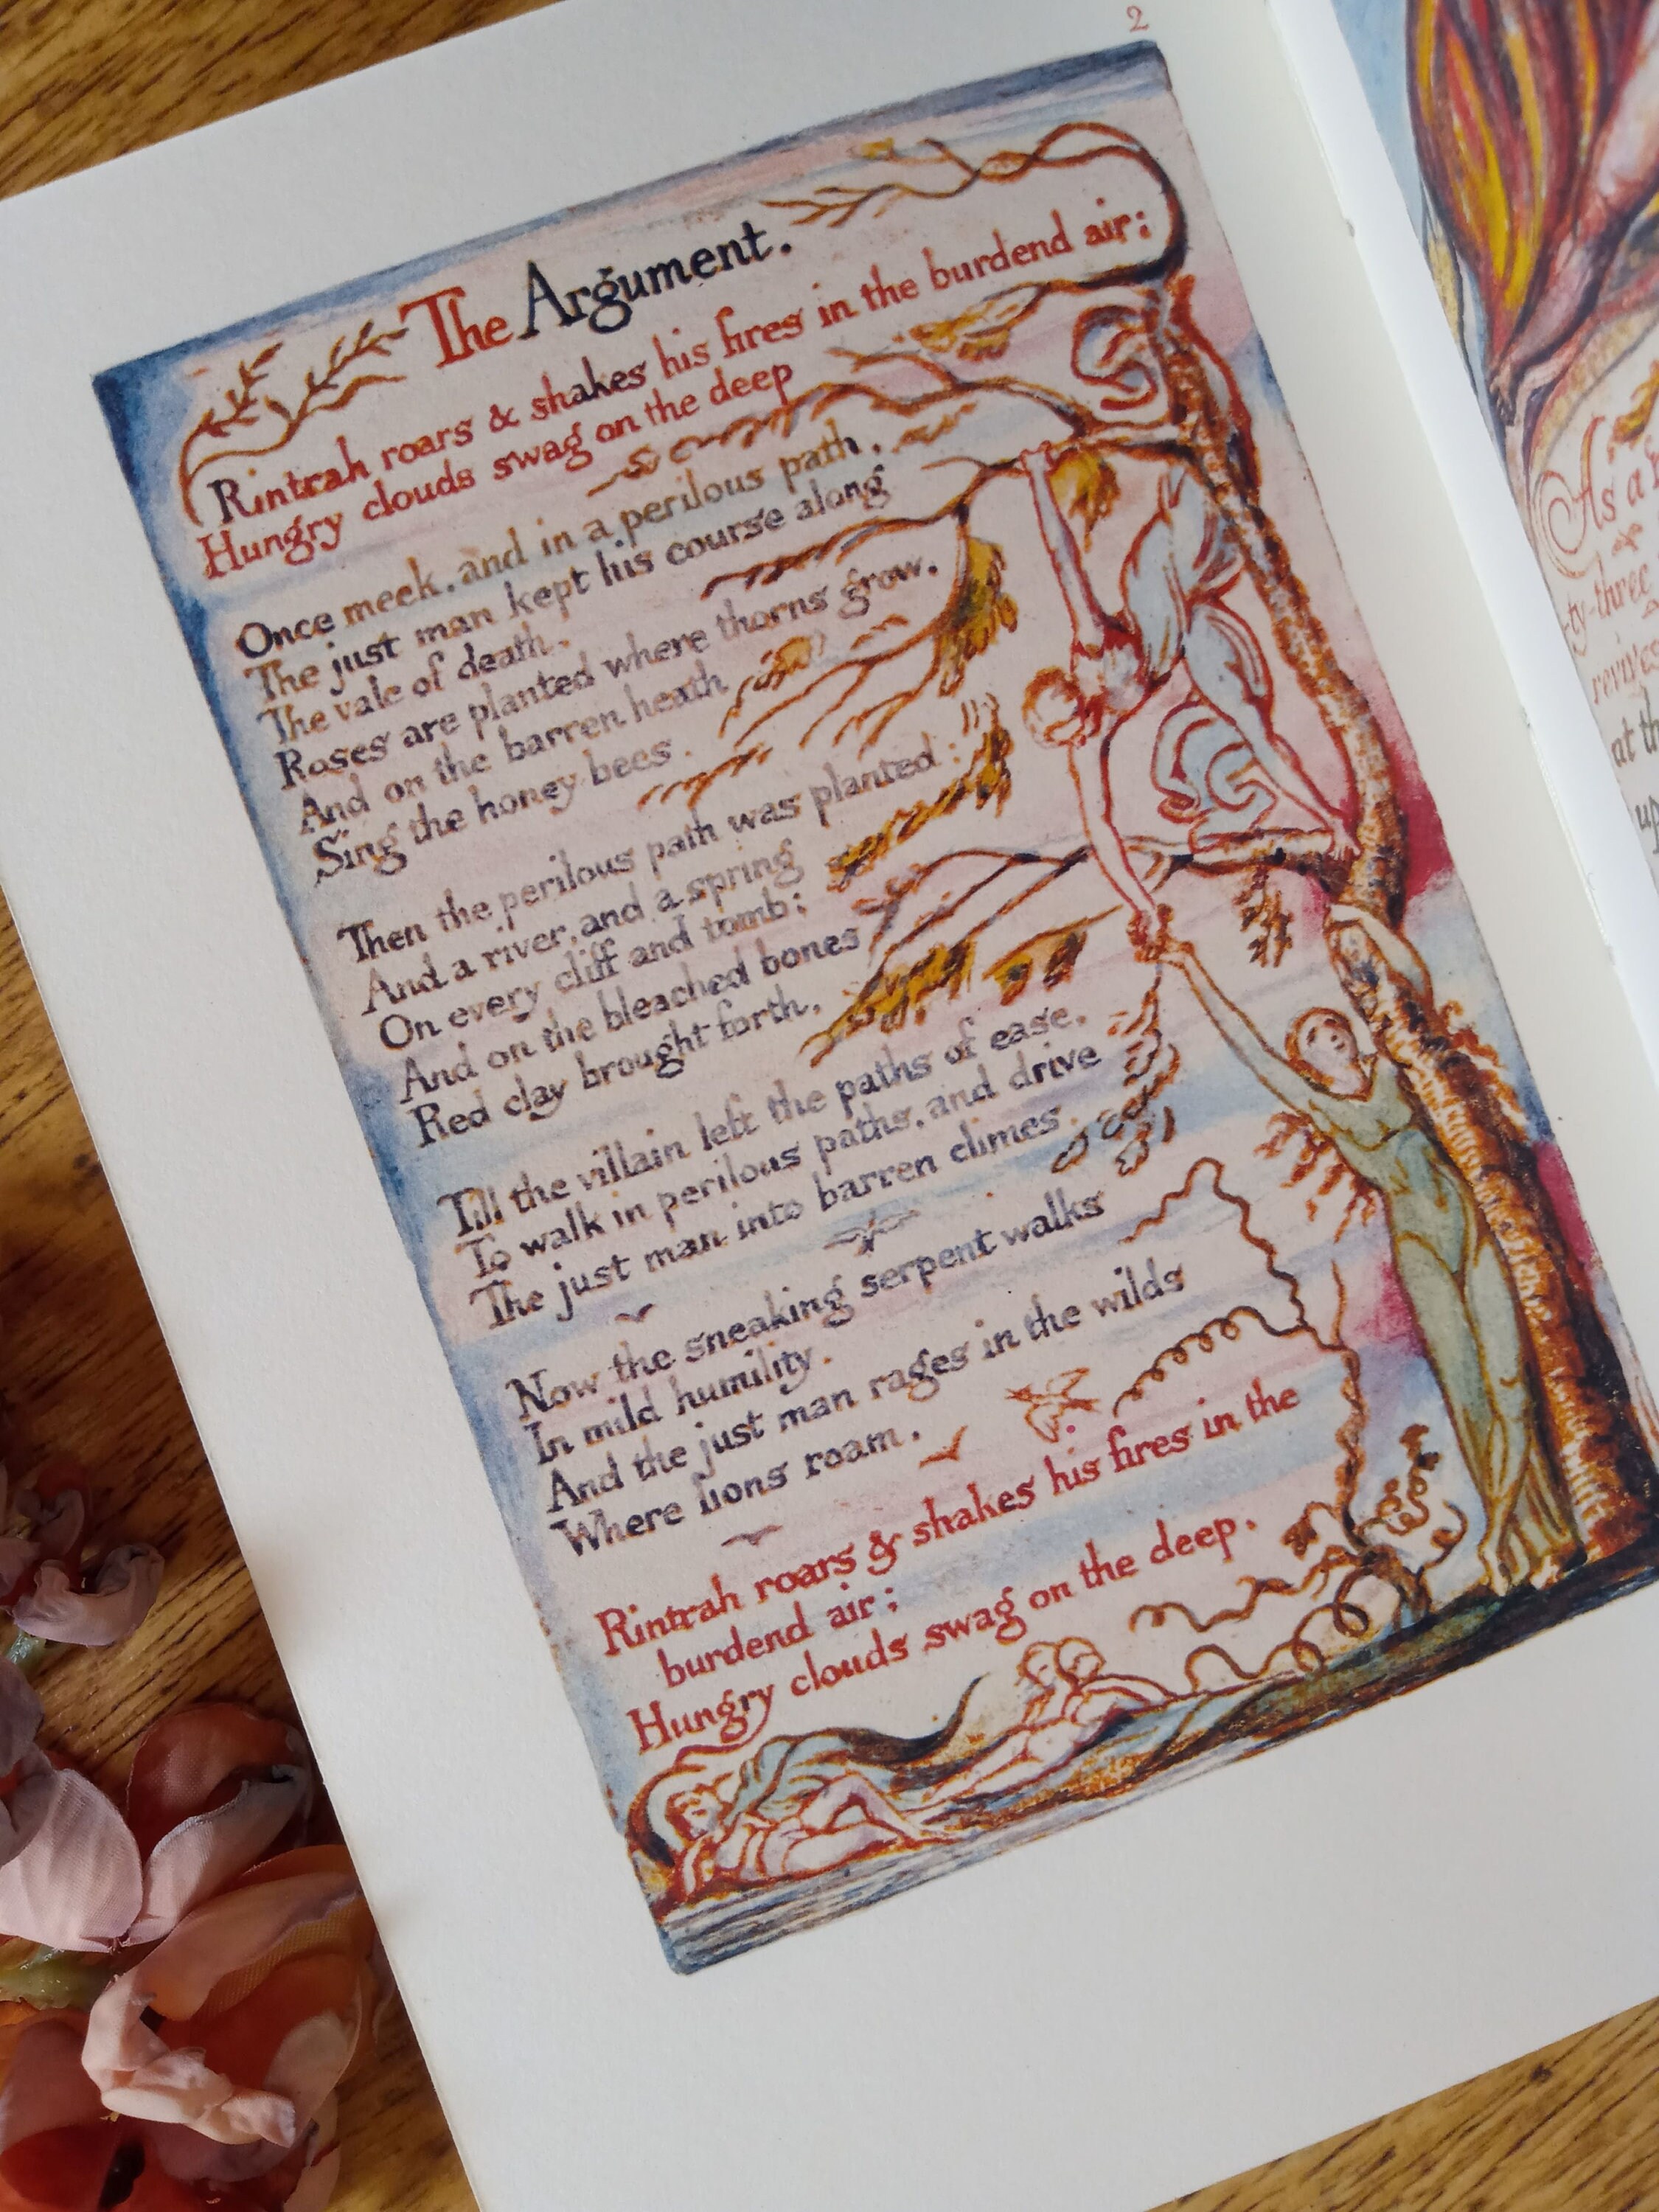 2
The Argument.
Rintrah roars & shakes his fires in the burdend air;
Hungry clouds swag on the deep
Once meek, and in a perilous path,
The just man kept his course along
The vale of death.
Roses are planted where thorns grow.
And on the barren heath
Sing the honey bees.
Then the perilous path was planted:
And a river, and a spring
On every cliff and tomb;
And on the bleached bones
Red clay brought forth.
Till the villain left the paths of ease,
To walk in perilous paths, and drive
The just man into barren climes.
Now the sneaking serpent walks
In mild humility.
And the just man rages in the wilds
Where lions roam.
Rintrah roars & shakes his fires in the
burdend air;
Hungry clouds swag on the deep.
As a
-ty-three
revives
at th
up